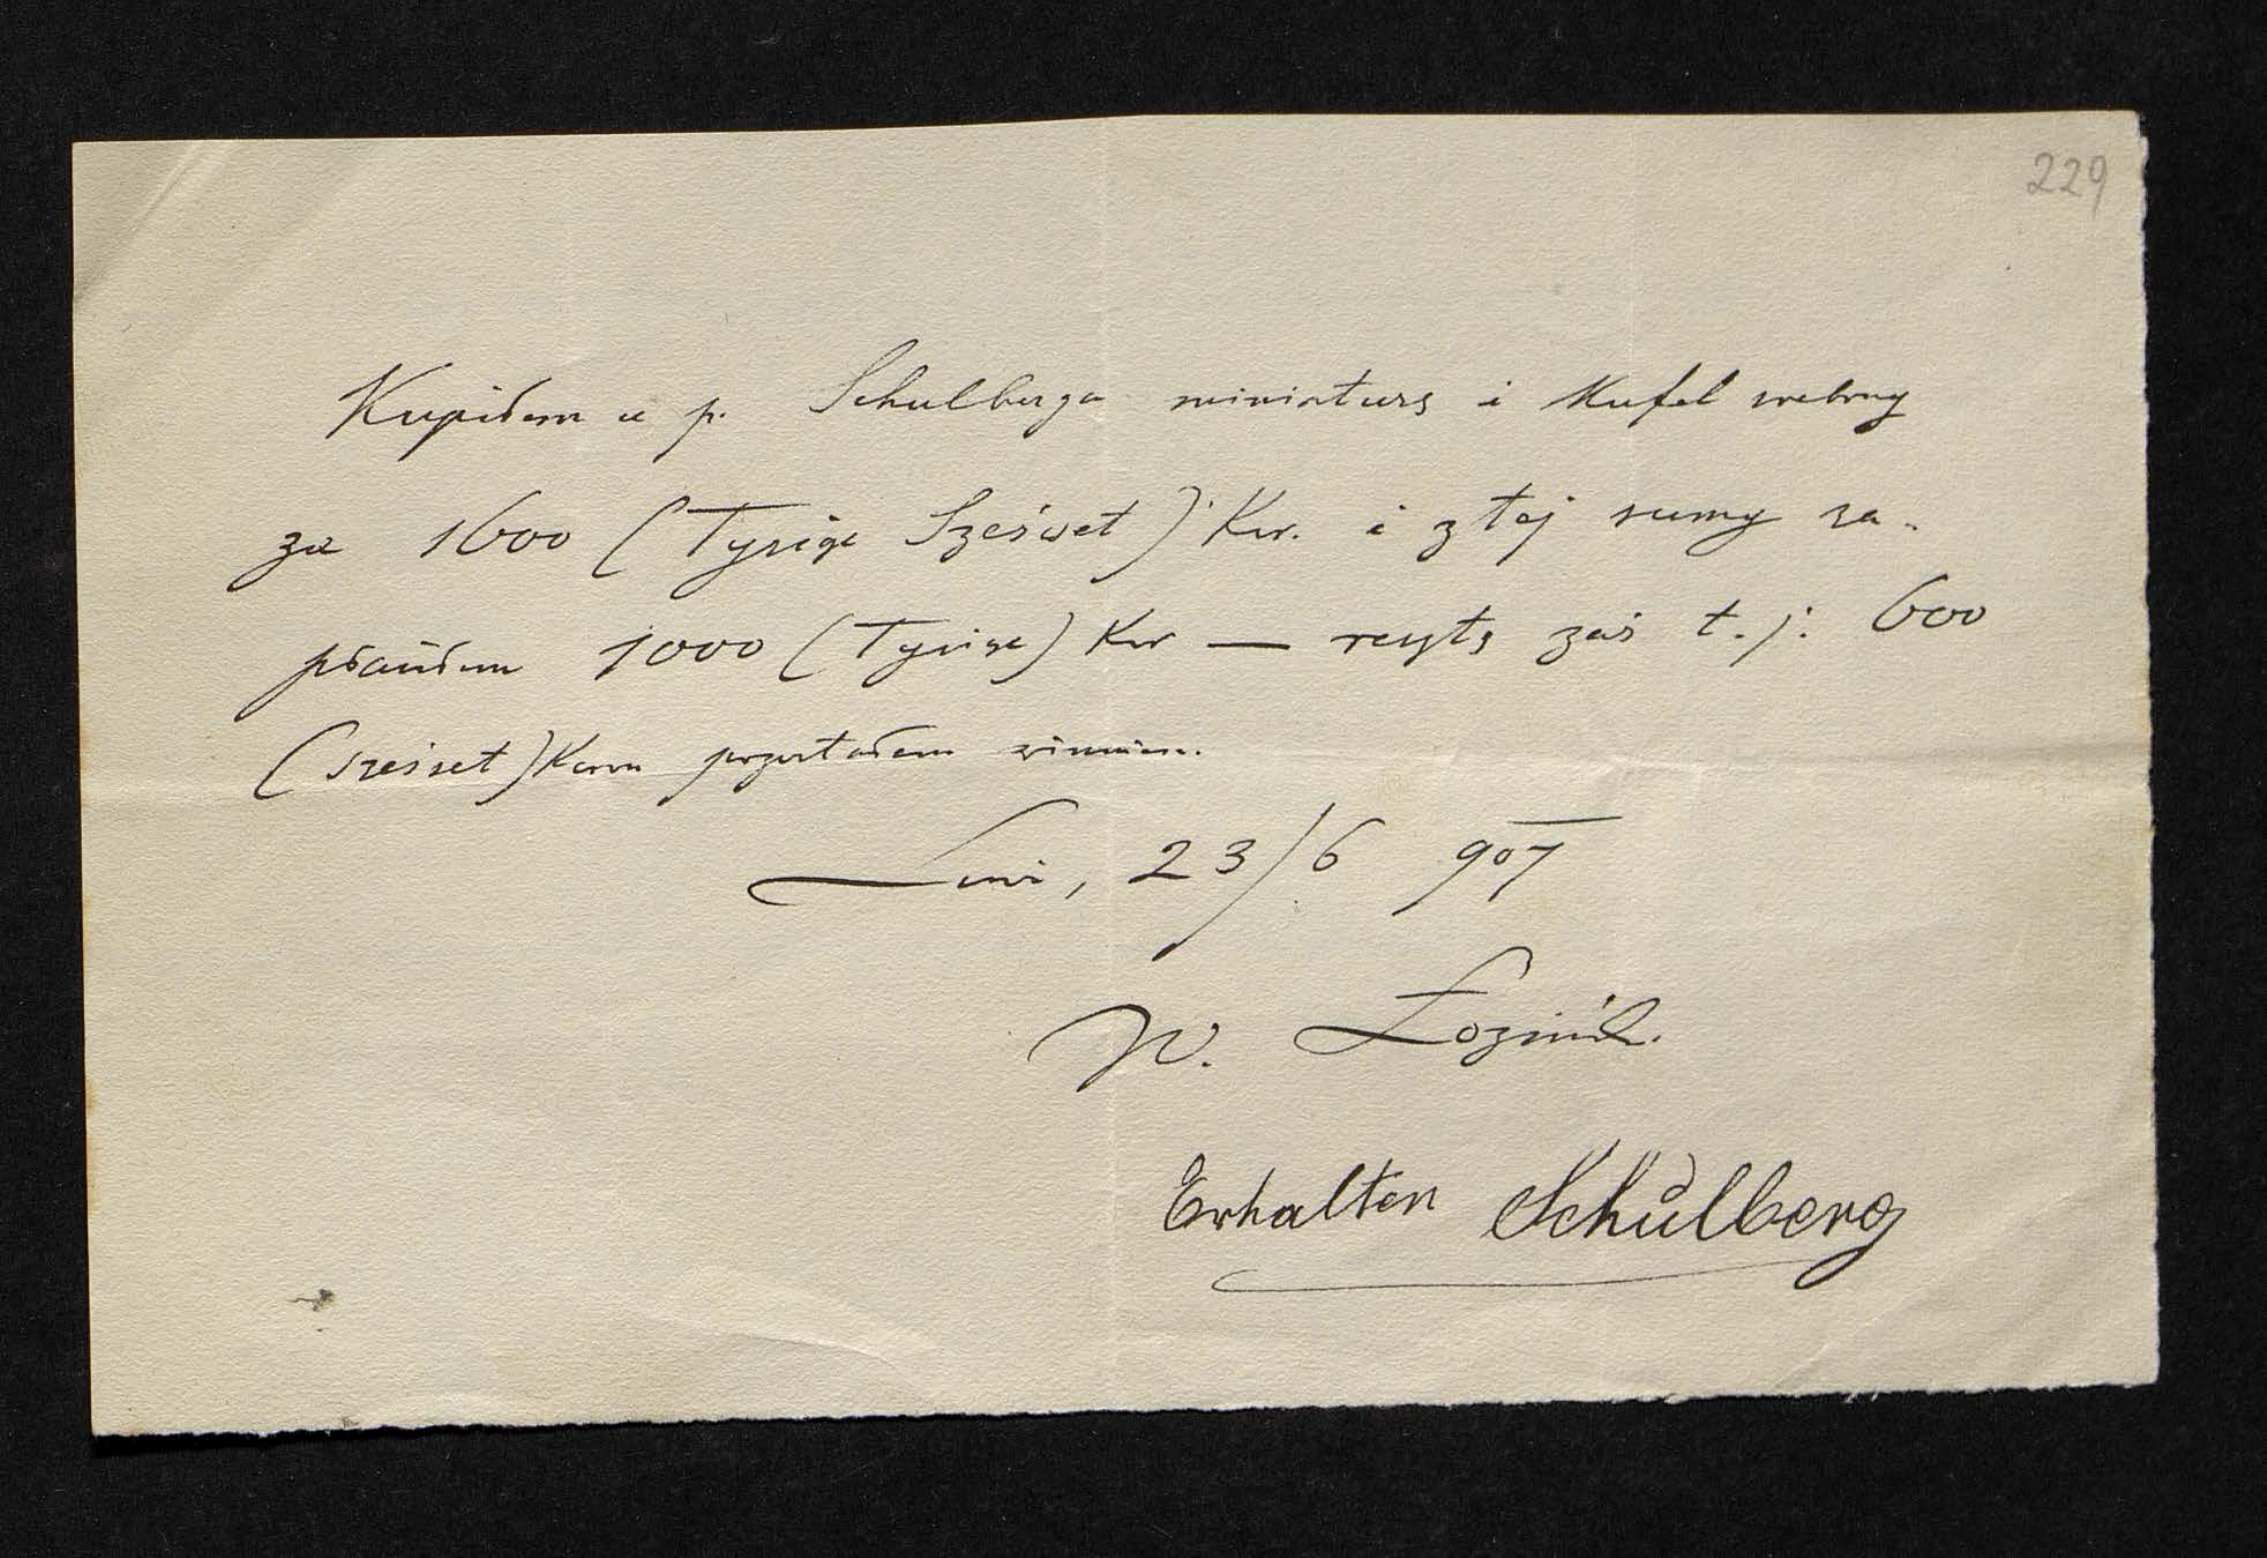 229
Kupiłem u p. Schulberga miniaturę i Kufel srebrny
za 1600 (Tysiąc Sześćset) Kor. i z tej sumy za-
płaciłem 1000 (Tysiąc) Kor — resztę zaś t. j. 600
(sześćset) Koron pozostałem winien.
Lwów, 23/6 907
W. Łoziński
Erhalten Schŭlberg